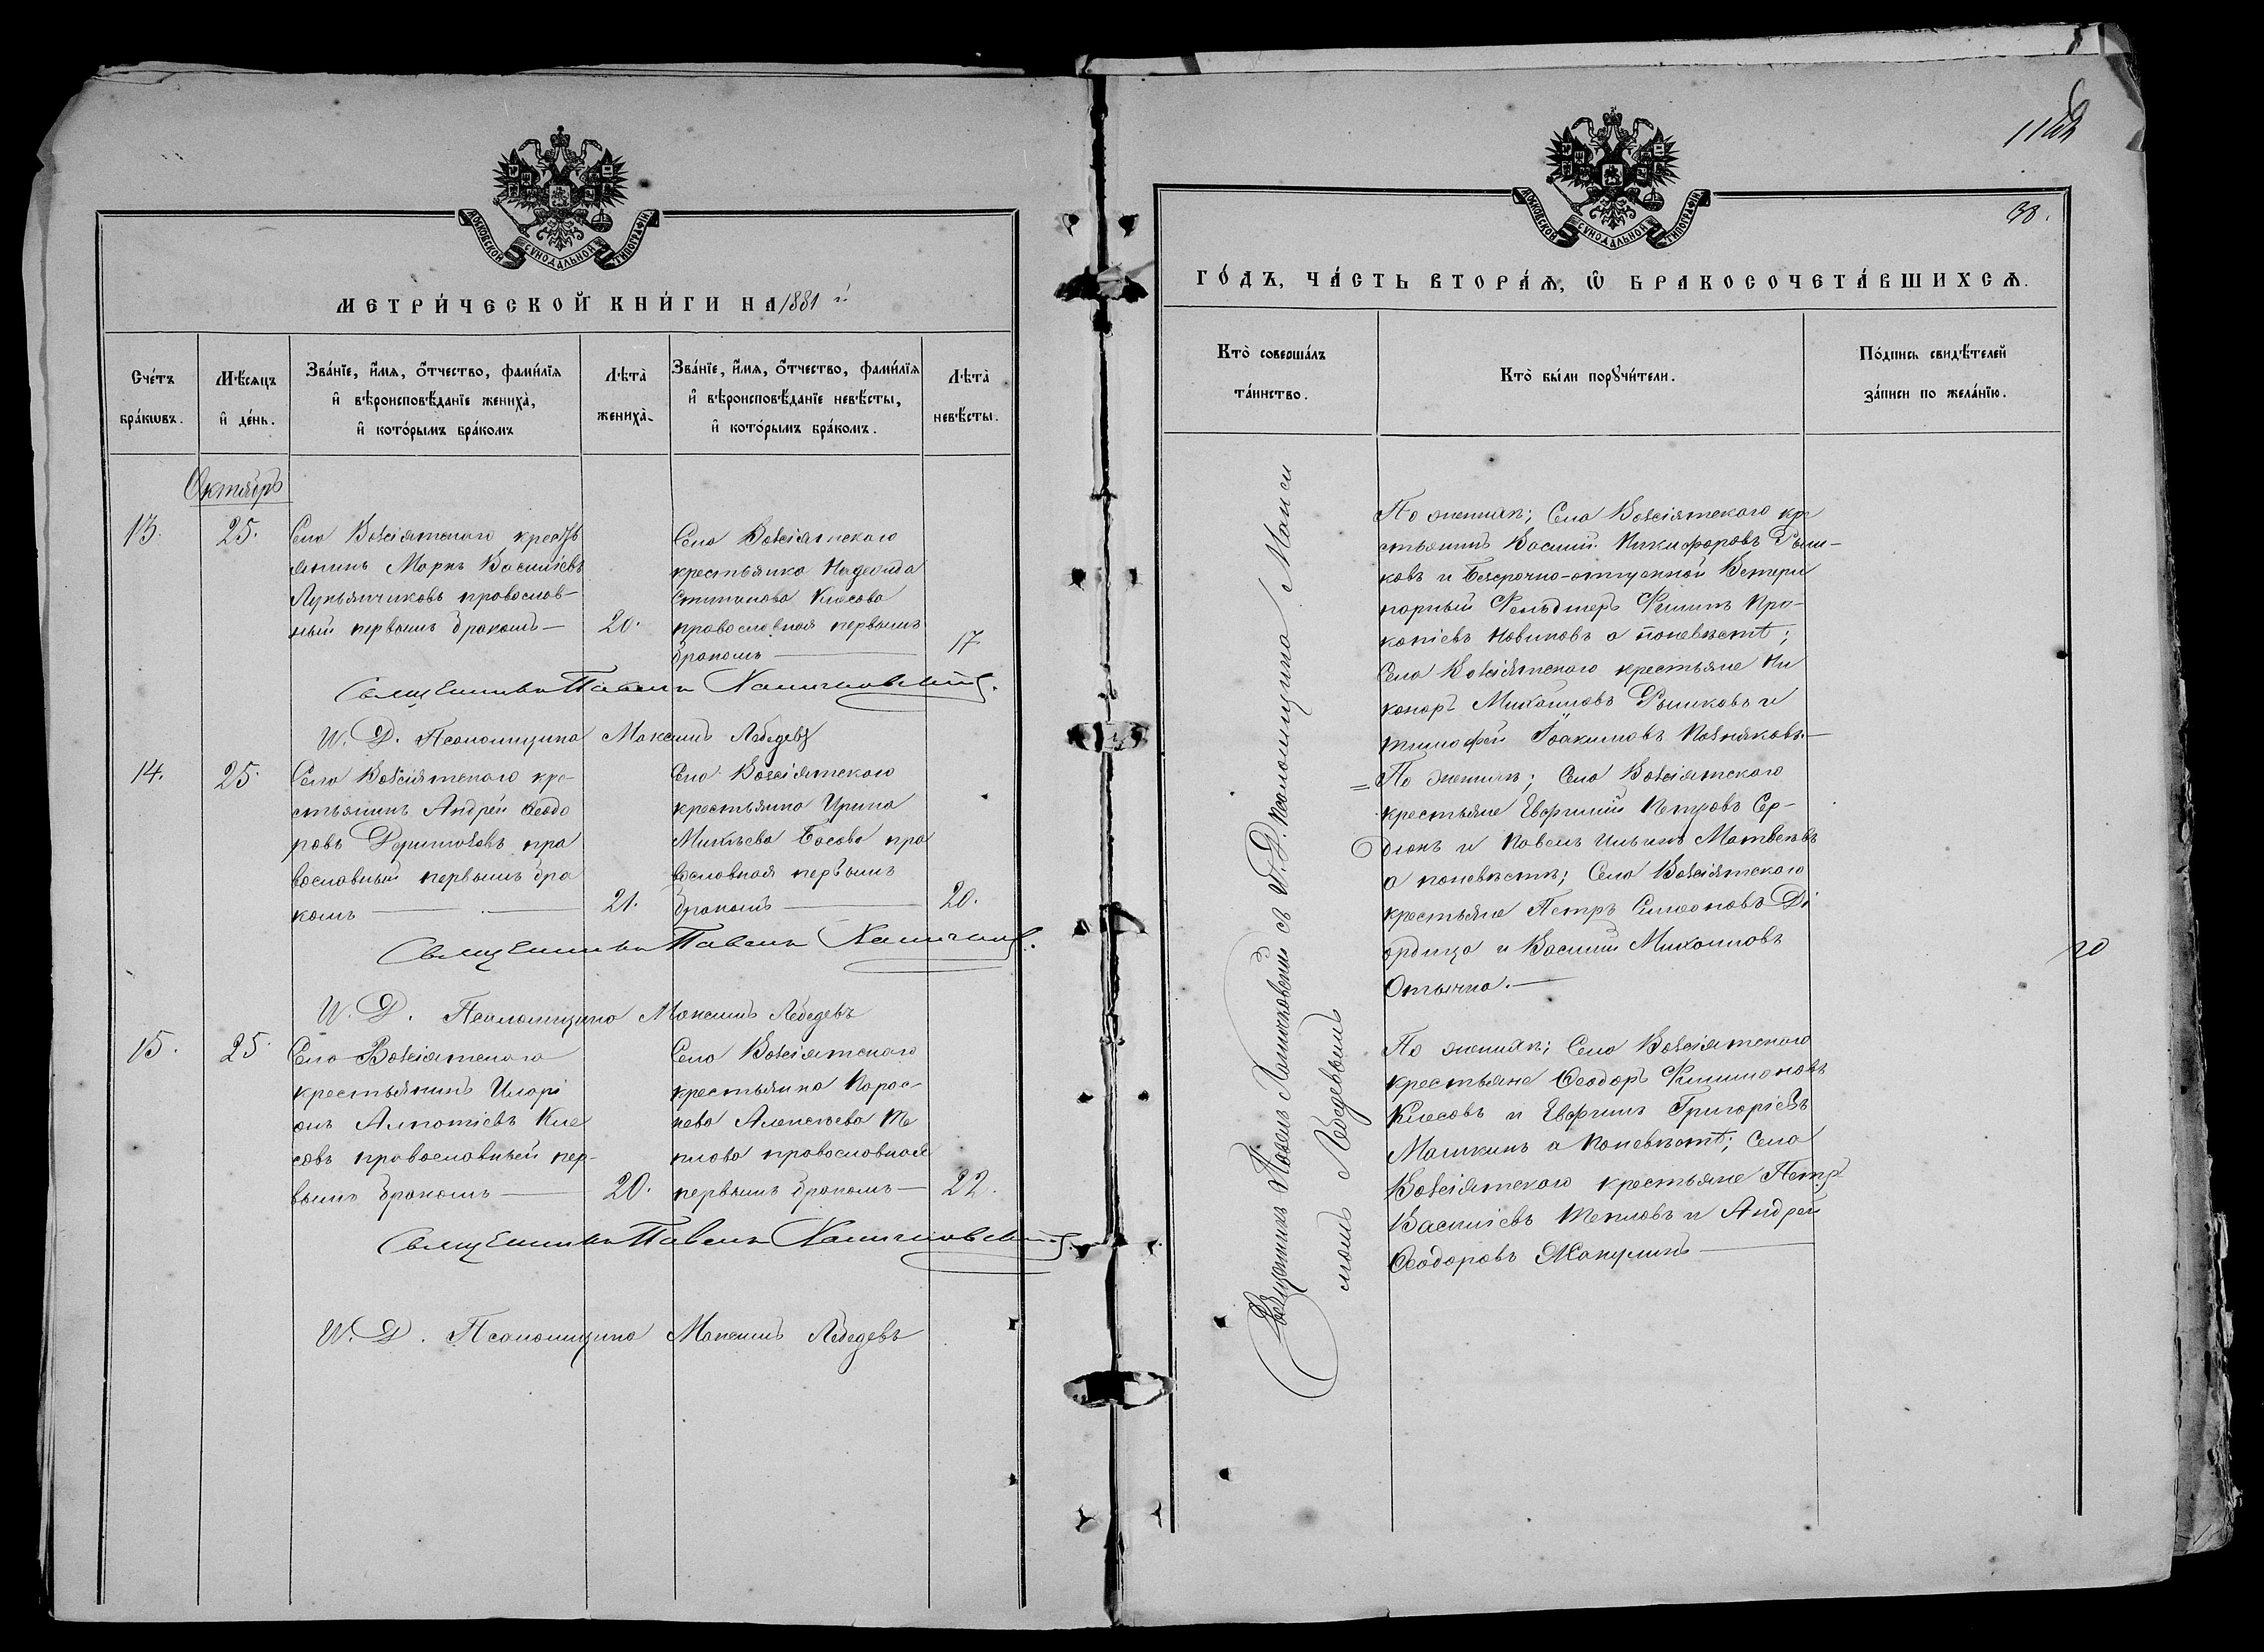 МОСКОВСКОЙ СѴНОДАЛЬНОЙ ТИПОГРАФІИ
МЕТРИ́ЧЕСКОЙ КНИ́ГИ НА 1881 й
Сче́тъ бра́кωвъ.
Мѣ́сѧцъ и҆ де́нь.
Зва́нїе, и҆́мѧ, ѻ҆́тчество, фами́лїѧ
и҆ вѣроисповѣ́данїе женихà,
и҆ кото́рымъ бра́комъ
Лѣтà
женихà.
Зва́нїе, и҆́мѧ, ѻ҆́тчество, фами́лїѧ
и҆ вѣроисповѣ́данїе невѣ́сты,
и҆ кото́рымъ бра́комъ.
Лѣтà
невѣ́сты.
Октябрь
13. 25.
Села Возсіятского кресть
янинъ Маркъ Василіевъ
Лукьянчиковъ православ-
ный первымъ бракомъ— 20.
Села Возсіятского
крестьянка Надежда
Стипанова Класова
православная первымъ
бракомъ — 17.
Священникъ Павелъ
И. Д. Псаломщика Максимъ Лебедевъ
14. 25.
Села Возсіятского кре-
стьянинъ Андрей Ѳеодо
ровъ пра
вославный первымъ бра
комъ — 21.
Села Возсіятского
крестьянка Ирина
Михѣева Басова пра
вославная первымъ
бракомъ — 20.
Священникъ Павелъ
И. Д. Псаломщика Максимъ Лебедевъ
15. 25.
Села Возсіятского
крестьянинъ Иларі
онъ Кле
совъ православный пер-
вымъ бракомъ — 20.
Села Возсіятского
крестьянка Парас-
кева Алексѣева Те
плова православная
первымъ бракомъ— 22.
Священникъ Павелъ
И. Д. Псаломщика Максимъ Лебедевъ
38.
МОСКОВСКОЙ СѴНОДАЛЬНОЙ ТИПОГРАФІИ
ГО́ДЪ, ЧА́СТЬ ВТОРА́Ѧ, Ѽ БРАКОСОЧЕТА́ВШИХСѦ.
Ктò соверша́лъ
та́инство.
Ктò бы́ли порꙋчи́тели.
По́дпись свидѣ́телей
за́писи по жела́нїю.
Священникъ Павелъ съ И. Д. Псаломщика Макси
момъ Лебедевымъ
По женихѣ; Села Возсіятского кре
стьянинъ Василій Никифоровъ Рыш-
ковъ и Безсрочно-отпускной Ветери
нарный Фельдшеръ Филипъ Про-
копіевъ Новиковъ а поневѣстѣ;
Села Возсіятского крестьяне Ни
каноръ Михаиловъ Рышковъ и
тимофей Іоакимовъ Позняковъ—
По женихѣ; Села Возсіятского
крестьяне Евфимій Петровъ Сер-
дюкъ и Павелъ Ильинъ Матвѣевъ
а поневѣстѣ; Села Возсіятского
крестьяне Петръ Симеоновъ Ді
ордица и Василій Михаиловъ
По женихѣ; Села Возсіятского
крестьяне Ѳеодоръ Филимоновъ
Клесовъ и Евфимъ Григоріевъ
Машкинъ а поневѣстѣ; Села
Возсіятского крестьяне Петръ
Василіевъ Тепловъ и Андрей
Ѳеодоровъ Жакулинъ—